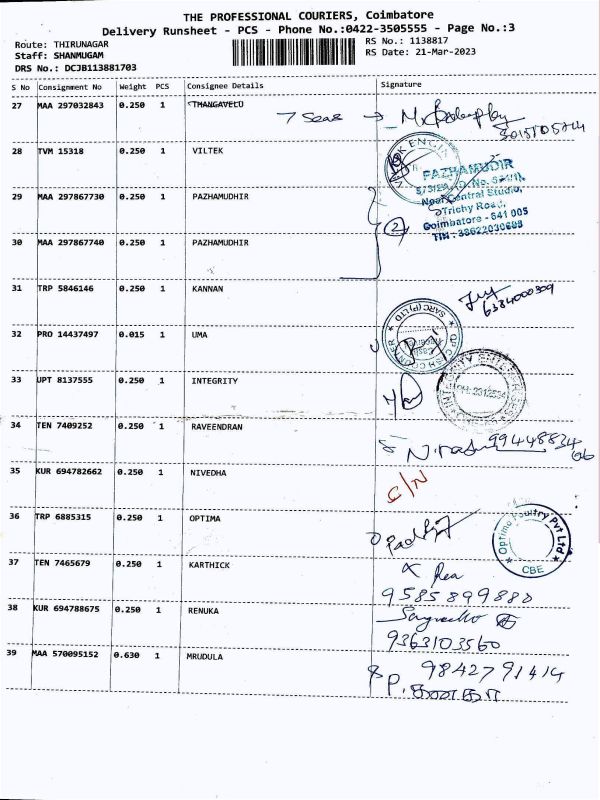 THE PROFESSIONAL COURIERS, Coimbatore
Delivery Runsheet - PCS - Phone No.:0422-3505555 - Page No.:3
Route: THIRUNAGAR
RS No.: 1138817
Staff: SHANMUGAM
RS Date: 21-Mar-2023
DRS No.: DCJB113881703
S No Consignment No Weight PCS Consignee Details Signature
27 MAA 297032843 0.250 1 THANGAVELU
7 Seas →
28 TVM 15318 0.250 1 VILTEK
29 MAA 297867730 0.250 1 PAZHAMUDHIR
PAZHAMUDIR
Neel Central Studio,
Trichy Road,
Coimbatore - 641 005
2
30 MAA 297867740 0.250 1 PAZHAMUDHIR
31 TRP 5846146 0.250 1 KANNAN
6384000309
32 PRO 14437497 0.015 1 UMA
33 UPT 8137555 0.250 1 INTEGRITY
34 TEN 7409252 0.250 1 RAVEENDRAN
35 KUR 694782662 0.250 1 NIVEDHA
36 TRP 6885315 0.250 1 OPTIMA
Optima Poultry Pvt Ltd
CBE
37 TEN 7465679 0.250 1 KARTHICK
9585899880
38 KUR 694788675 0.250 1 RENUKA
9363103560
39 MAA 570095152 0.630 1 MRUDULA
9842791414